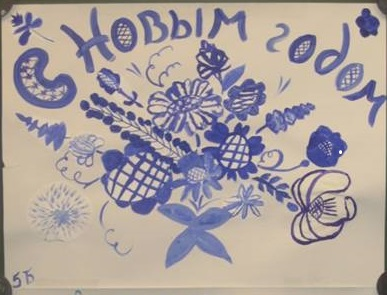 С НОВЫМ годом
5Б